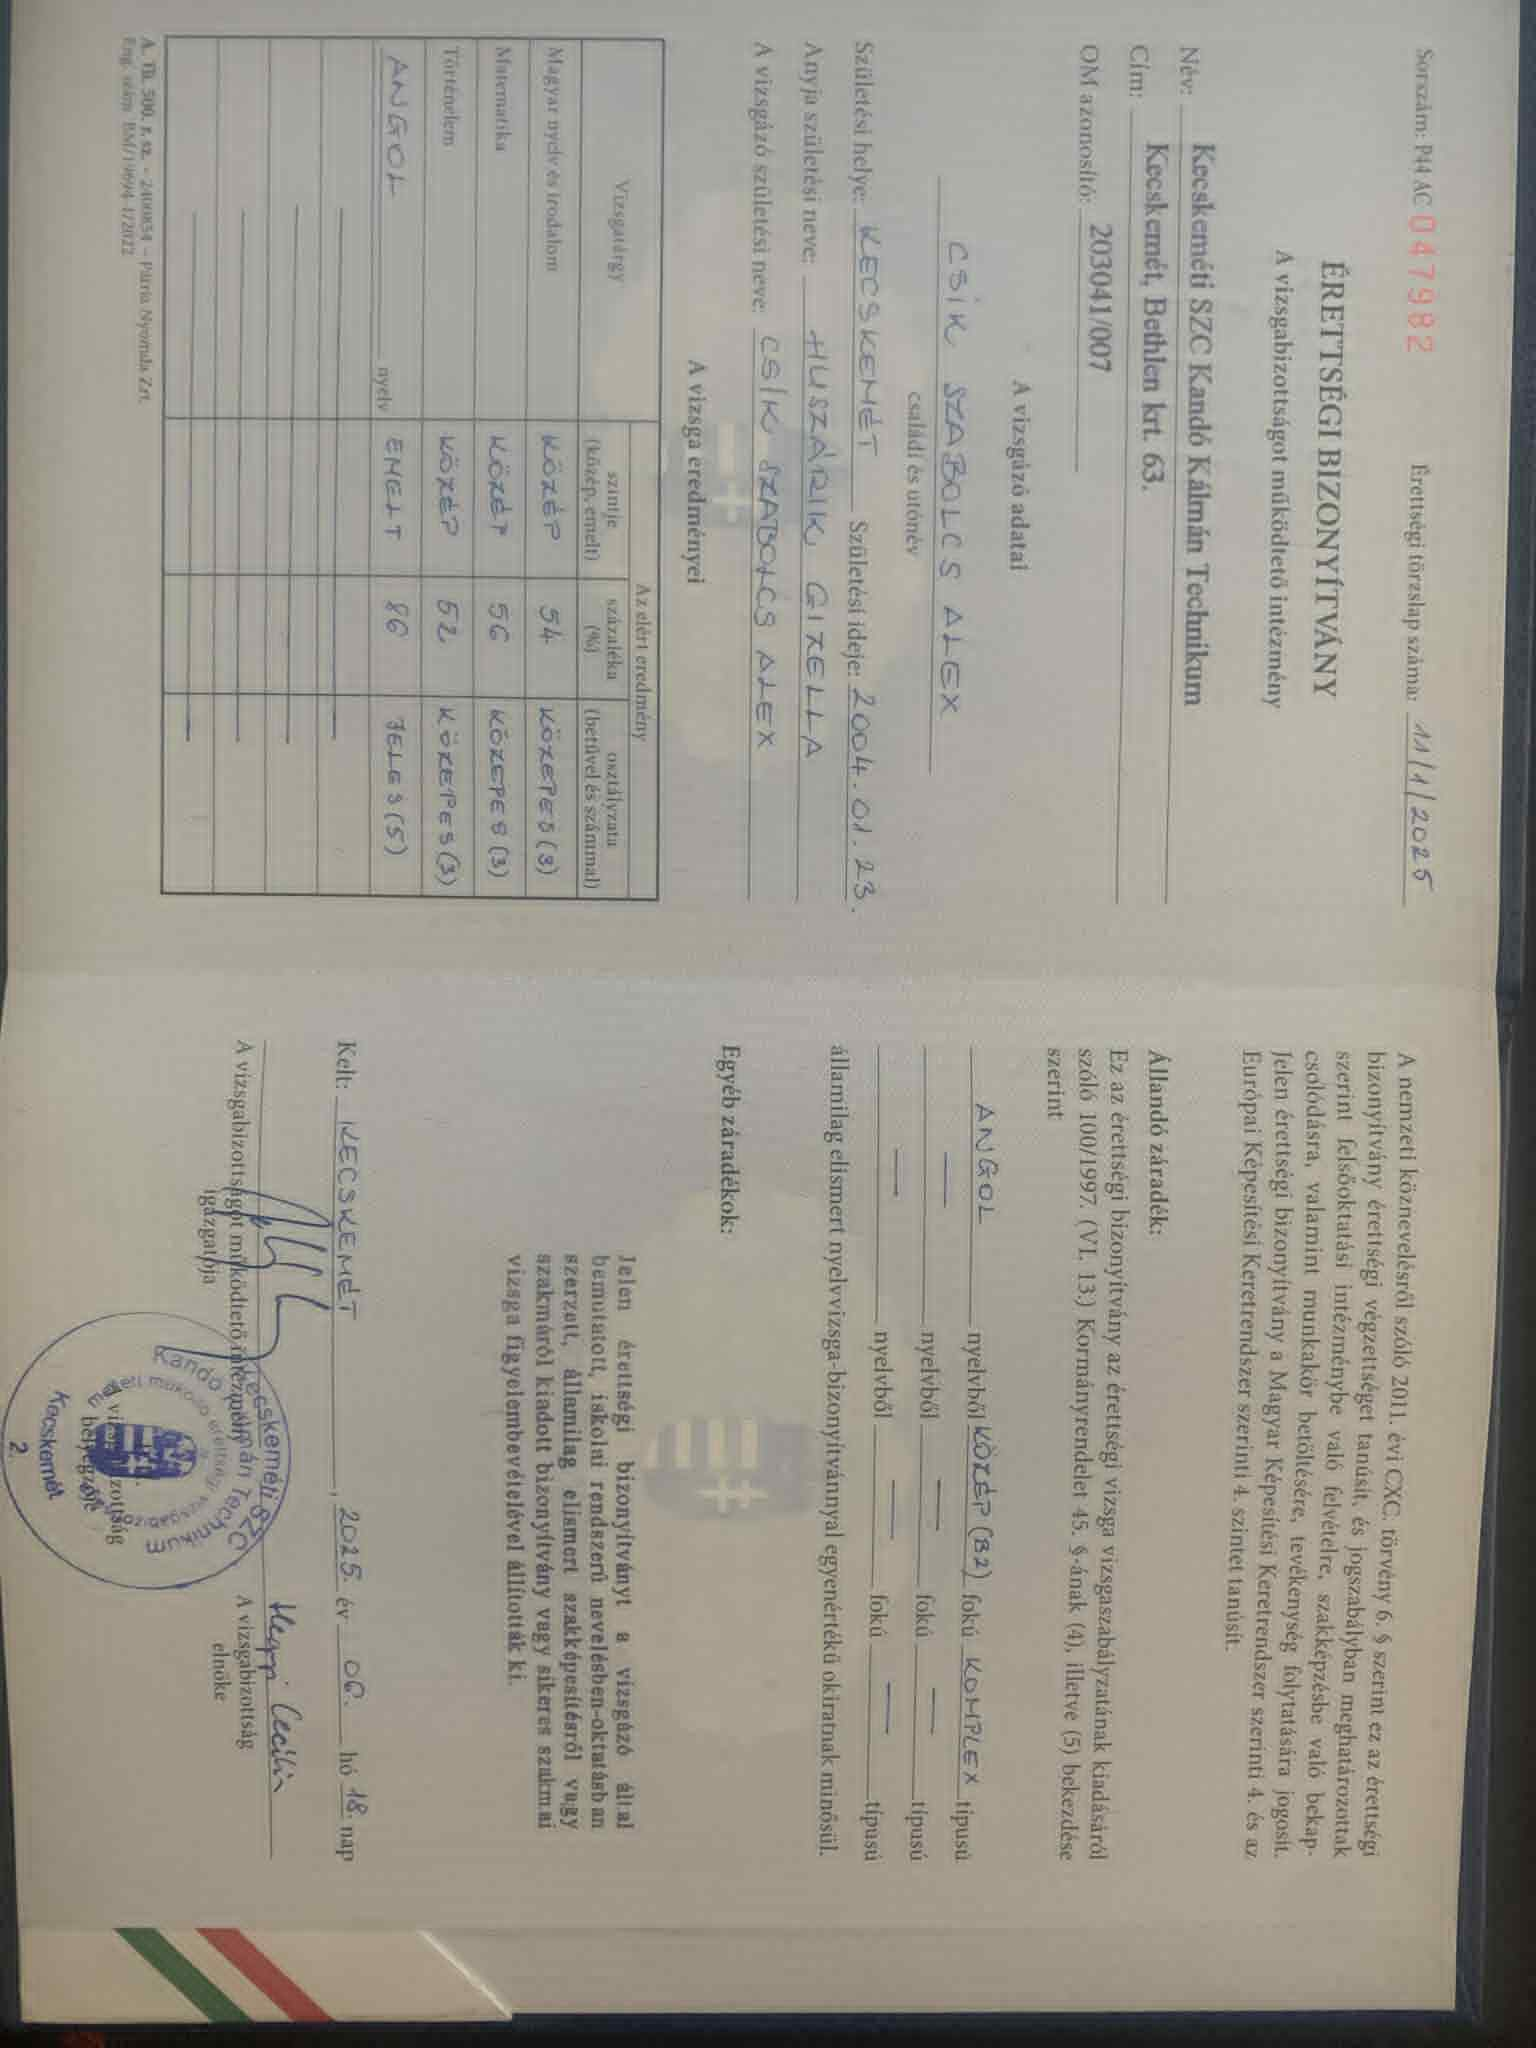 Sorszám: P44 AC 047982
Érettségi törzslap száma: 11/1/2025
ÉRETTSÉGI BIZONYÍTVÁNY
A vizsgabizottságot működtető intézmény
Név: Kecskeméti SZC Kandó Kálmán Technikum
Cím: Kecskemét, Bethlen krt. 63.
OM azonosító: 203041/007
A vizsgázó adatai
CSÍK SZABOLCS ALEX
családi és utónév
Születési helye: KECSKEMÉT Születési ideje: 2004.01.23.
Anyja születési neve: HUSZÁRIK GIZELLA
A vizsgázó születési neve: CSÍK SZABOLCS ALEX
A vizsga eredményei
Vizsgatárgy
Az elért eredmény
szintje (közép, emelt)
százaléka (%)
osztályzata (betűvel és számmal)
Magyar nyelv és irodalom KÖZÉP 54 KÖZEPES (3)
Matematika KÖZÉP 56 KÖZEPES (3)
Történelem KÖZÉP 52 KÖZEPES (3)
ANGOL nyelv EMELT 86 JELES (5)
A. Tü. 500. r. sz. - 2400834 – Pátria Nyomda Zrt.
Eng. szám: BM/19694-1/2022
A nemzeti köznevelésről szóló 2011. évi CXC. törvény 6. § szerint ez az érettségi
bizonyítvány érettségi végzettséget tanúsít, és jogszabályban meghatározottak
szerint felsőoktatási intézménybe való felvételre, szakképzésbe való bekap-
csolódásra, valamint munkakör betöltésére, tevékenység folytatására jogosít.
Jelen érettségi bizonyítvány a Magyar Képesítési Keretrendszer szerinti 4. és az
Európai Képesítési Keretrendszer szerinti 4. szintet tanúsít.
Állandó záradék:
Ez az érettségi bizonyítvány az érettségi vizsga vizsgaszabályzatának kiadásáról
szóló 100/1997. (VI. 13.) Kormányrendelet 45. §-ának (4), illetve (5) bekezdése
szerint
ANGOL nyelvből KÖZÉP (B2) fokú KOMPLEX típusú
— nyelvből — fokú — típusú
— nyelvből — fokú — típusú
államilag elismert nyelvvizsga-bizonyítvánnyal egyenértékű okiratnak minősül.
Egyéb záradékok:
Jelen érettségi bizonyítványt a vizsgázó által
bemutatott, iskolai rendszerű nevelésben-oktatásban
szerzett, államilag elismert szakképesítésről vagy
szakmáról kiadott bizonyítvány vagy sikeres szakmai
vizsga figyelembevételével állították ki.
Kelt: KECSKEMÉT, 2025. év 06. hó 18. nap
Heppi Cecília
A vizsgabizottságot működtető intézmény
igazgatója
A vizsgabizottság
elnöke
A vizsgabizottság
bélyegzője
Kecskeméti SZC
Kandó Kálmán Technikum
mellett működő érettségi vizsgabizottság
Kecskemét
2.